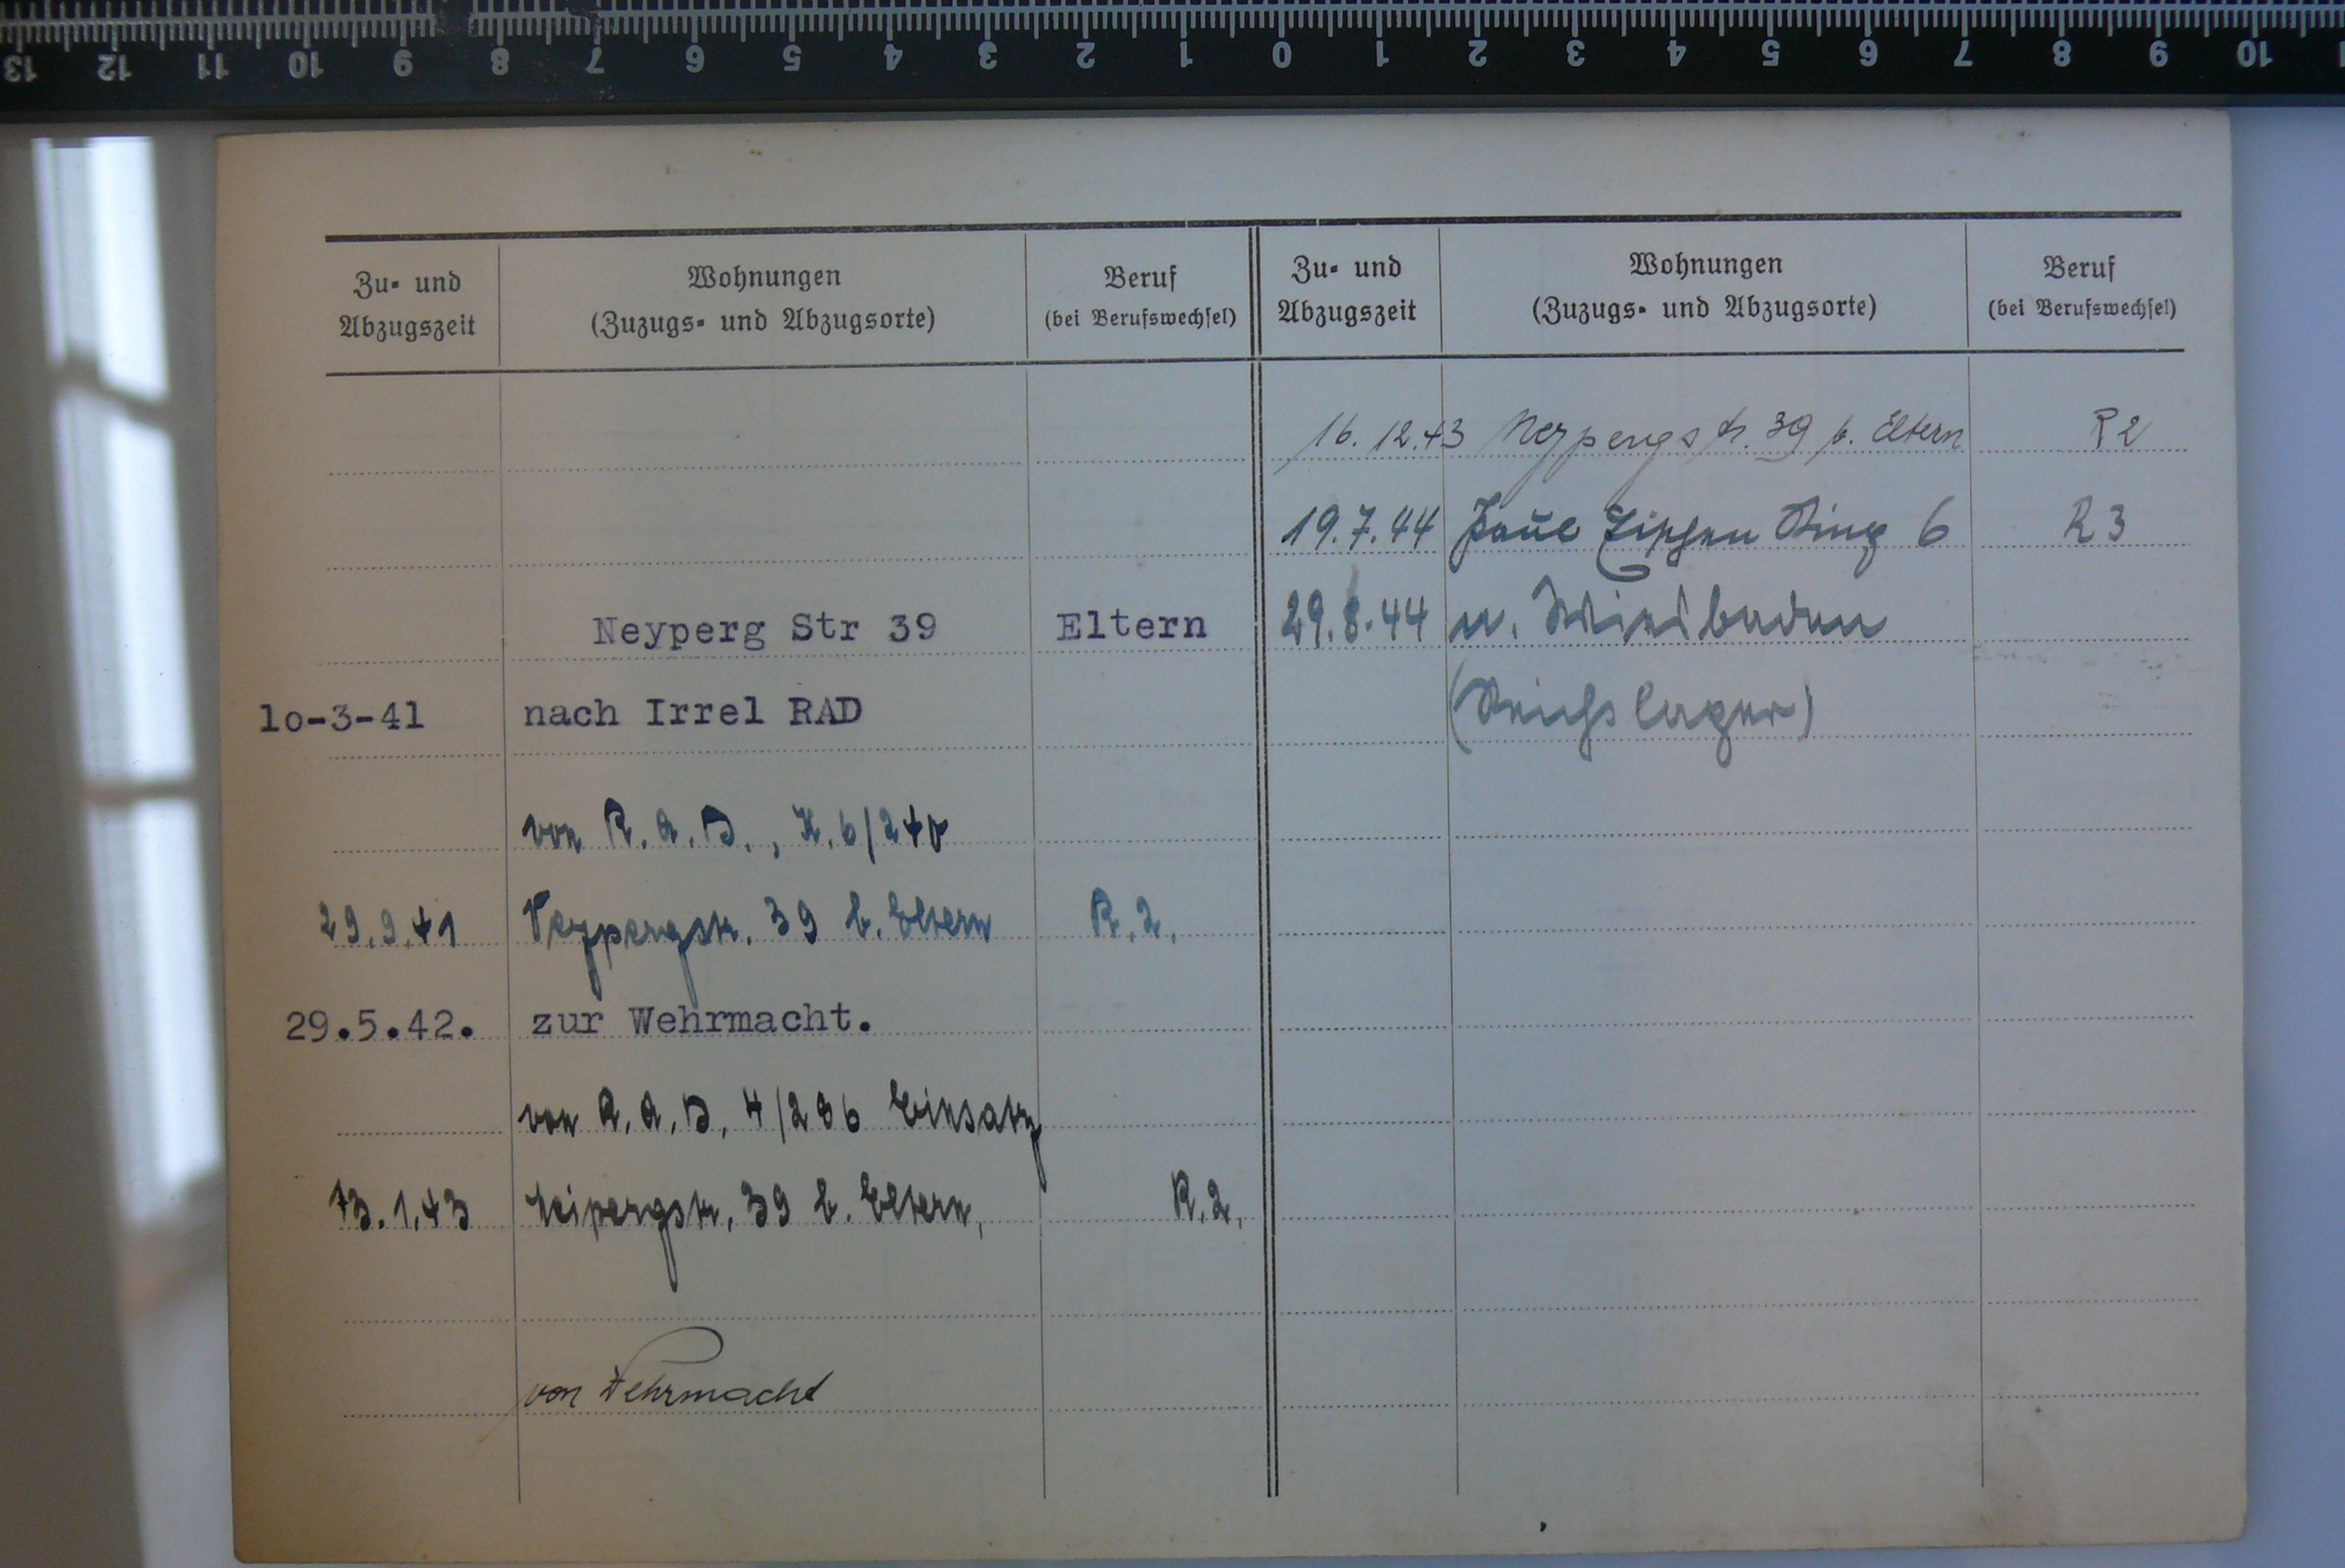 13 12 11 10 9 8 7 6 5 4 3 2 1 0 1 2 3 4 5 6 7 8 9 10
Zu- und Abzugszeit
Wohnungen (Zuzugs- und Abzugsorte)
Beruf (bei Berufswechsel)
Neyperg Str 39 Eltern
lo-3-41 nach Irrel RAD
von R.A.D., K.6/240
29.9.41 Neypergstr. 39 b. Eltern R.2.
29.5.42. zur Wehrmacht.
von R.A.D. 4/286 Einsatz
13.1.43 Neipergstr. 39 b. Eltern, R.2.
von Wehrmacht
Zu- und Abzugszeit
Wohnungen (Zuzugs- und Abzugsorte)
Beruf (bei Berufswechsel)
16.12.43 Neypergstr. 39 b. Eltern R2
19.7.44 Ring 6 R3
29.8.44 n. Wiesbaden
(Reichslager)